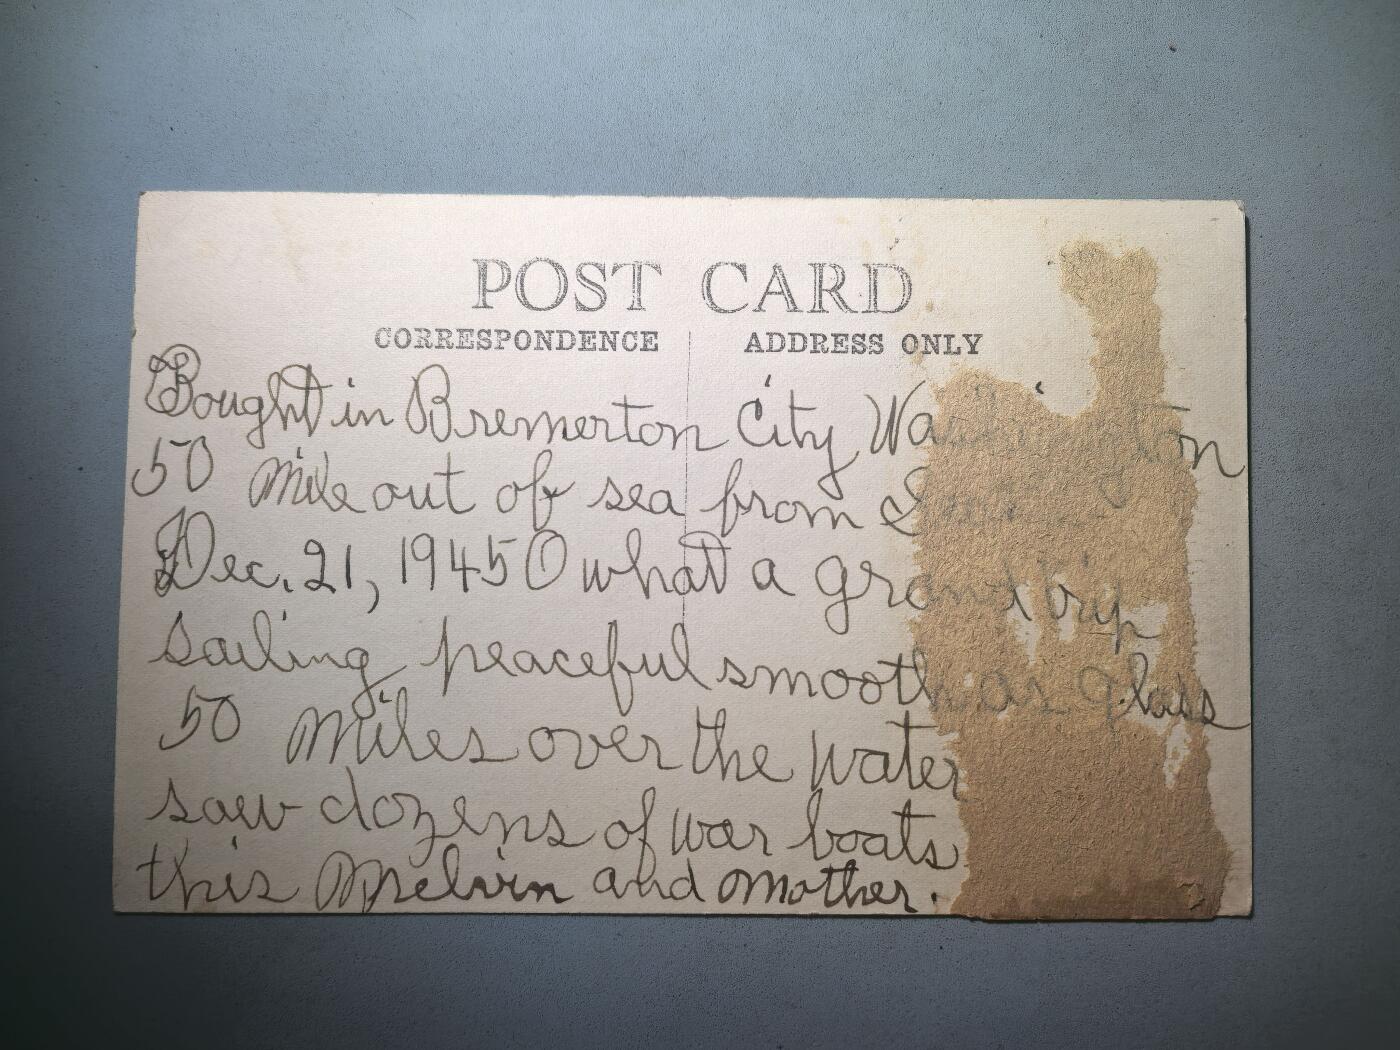 POST CARD
CORRESPONDENCE ADDRESS ONLY
Bought in Bremerton City Washington
50 Mile out of sea from
Dec. 21, 1945 O what a grand trip
sailing peaceful smooth as glass
50 Miles over the water
saw dozens of war boats
this Melvin and Mother.